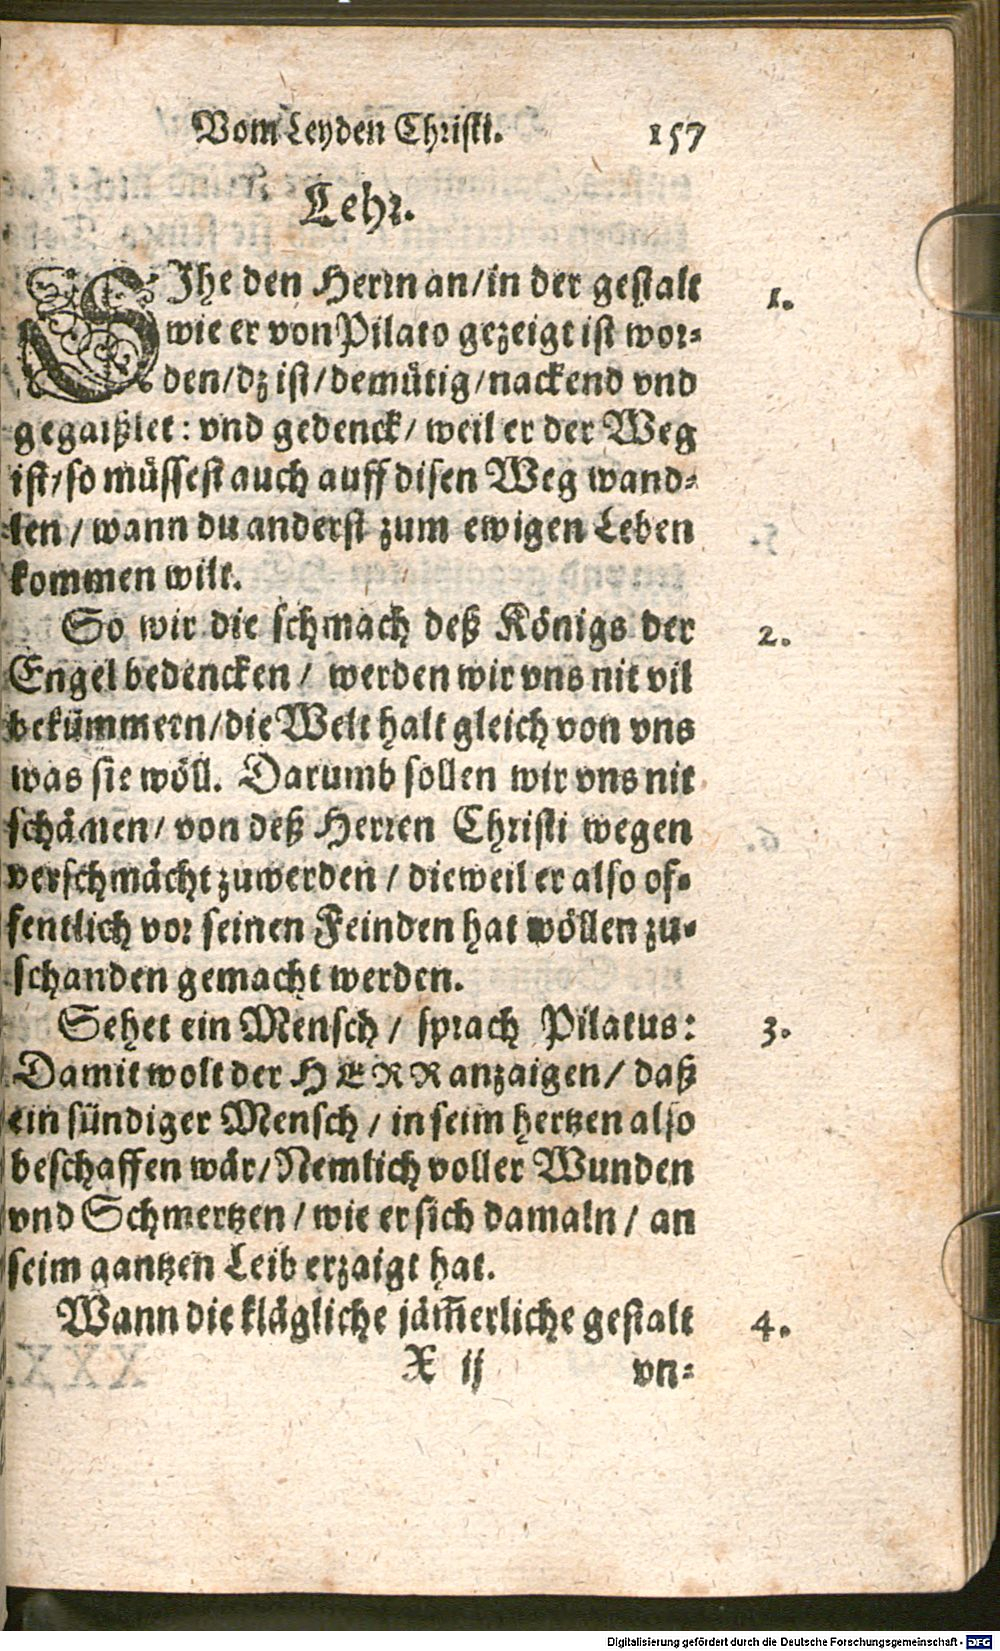 Vom Leyden Christi. 157
Lehr.
SIhe den Herrn an/in der gestalt 1.
wie er von Pilato gezeigt ist wor-
den/dz ist/demütig/nackend vnd
gegaißlet: vnd gedenck/ weil er der Weg
ist/so müssest auch auff disen Weg wand-
len / wann du anderst zum ewigen Leben
kommen wilt.
So wir die schmach deß Königs der 2.
Engel bedencken / werden wir vns nit vil
bekümmern/die Welt halt gleich von vns
was sie wöll. Darumb sollen wir vns nit
schämen/ von deß Herren Christi wegen
verschmächt zuwerden / dieweil er also of-
fentlich vor seinen Feinden hat wöllen zu-
schanden gemacht werden.
Sehet ein Mensch / sprach Pilatus: 3.
Damit wolt der HERR anzaigen/ daß
ein sündiger Mensch / in seim hertzen also
beschaffen wär/Nemlich voller Wunden
vnd Schmertzen / wie er sich damaln / an
seim gantzen Leib erzaigt hat.
Wann die klägliche jäm̃erliche gestalt 4.
X ij vn-
Digitalisierung gefördert durch die Deutsche Forschungsgemeinschaft - DFG